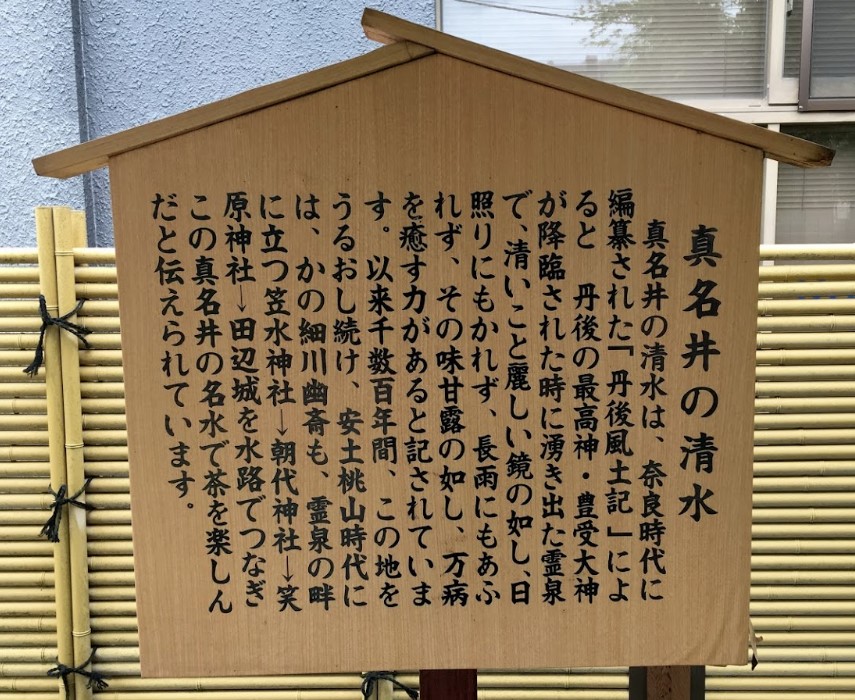 真名井の清水
真名井の清水は、奈良時代に
編纂された「丹後風土記」によ
ると 丹後の最高神・豊受大神
が降臨された時に湧き出た霊泉
で、清いこと麗しい鏡の如し、日
照りにもかれず、長雨にもあふ
れず、その味甘露の如し、万病
を癒す力があると記されていま
す。以来千数百年間、この地を
うるおし続け、安土桃山時代に
は、かの細川幽斎も、霊泉の畔
に立つ笠水神社→朝代神社→笑
原神社→田辺城を水路でつなぎ
この真名井の名水で茶を楽しん
だと伝えられています。